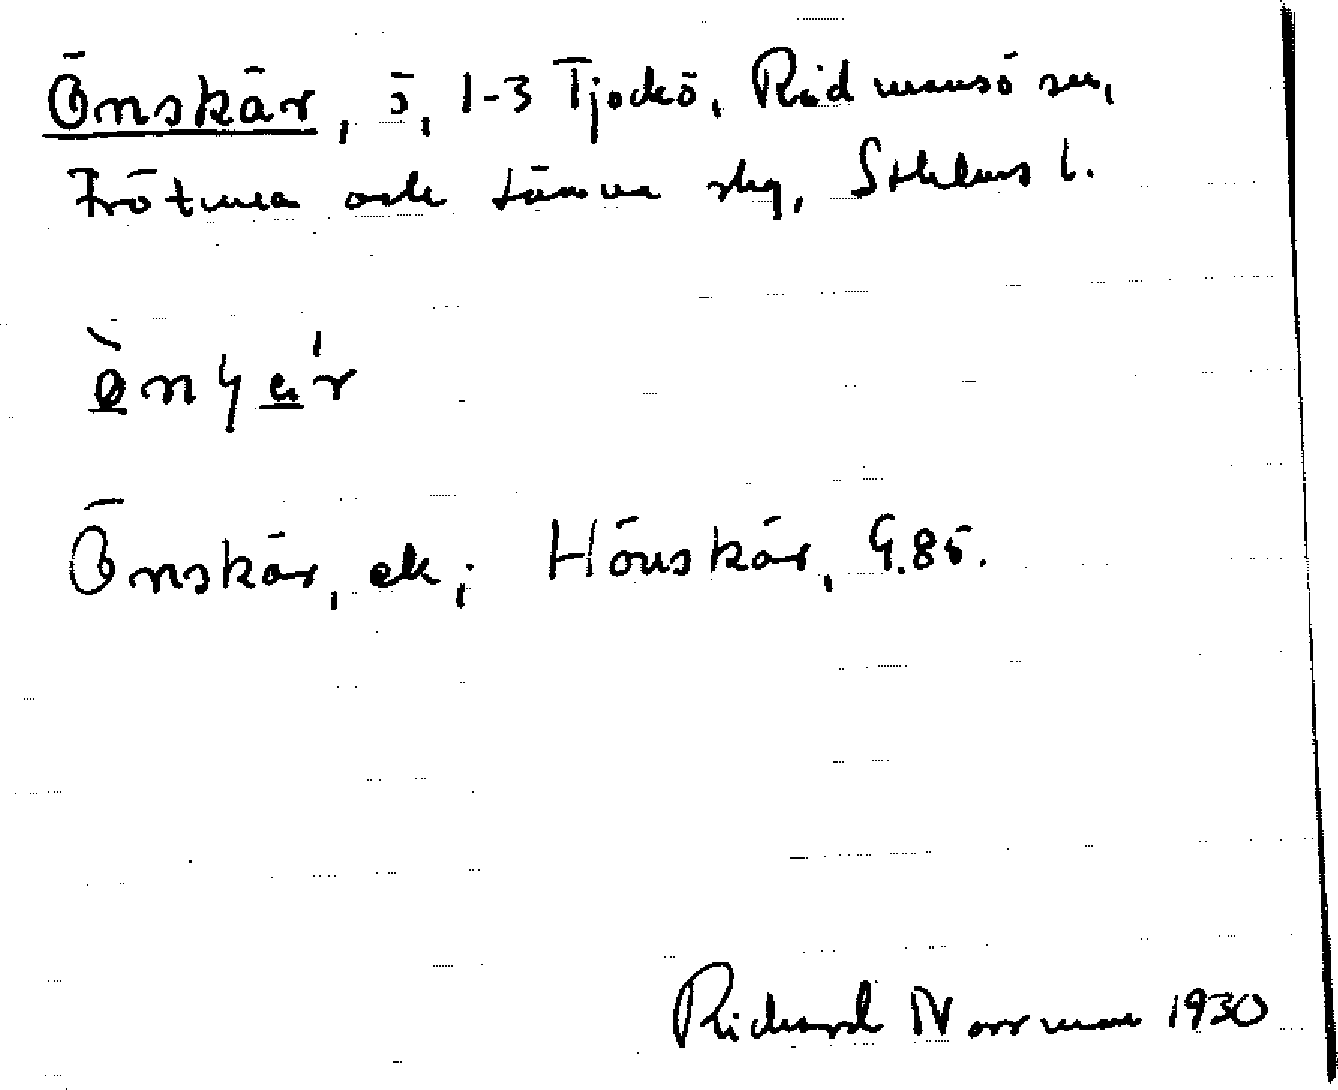 Önskär, ö, 1-3 Tjockö, Rådmansö sn,
Frötuna och Länna skg, Sthlms l.
Önskär, ek; Hönskär, G.85.
Richard Norrman 1930